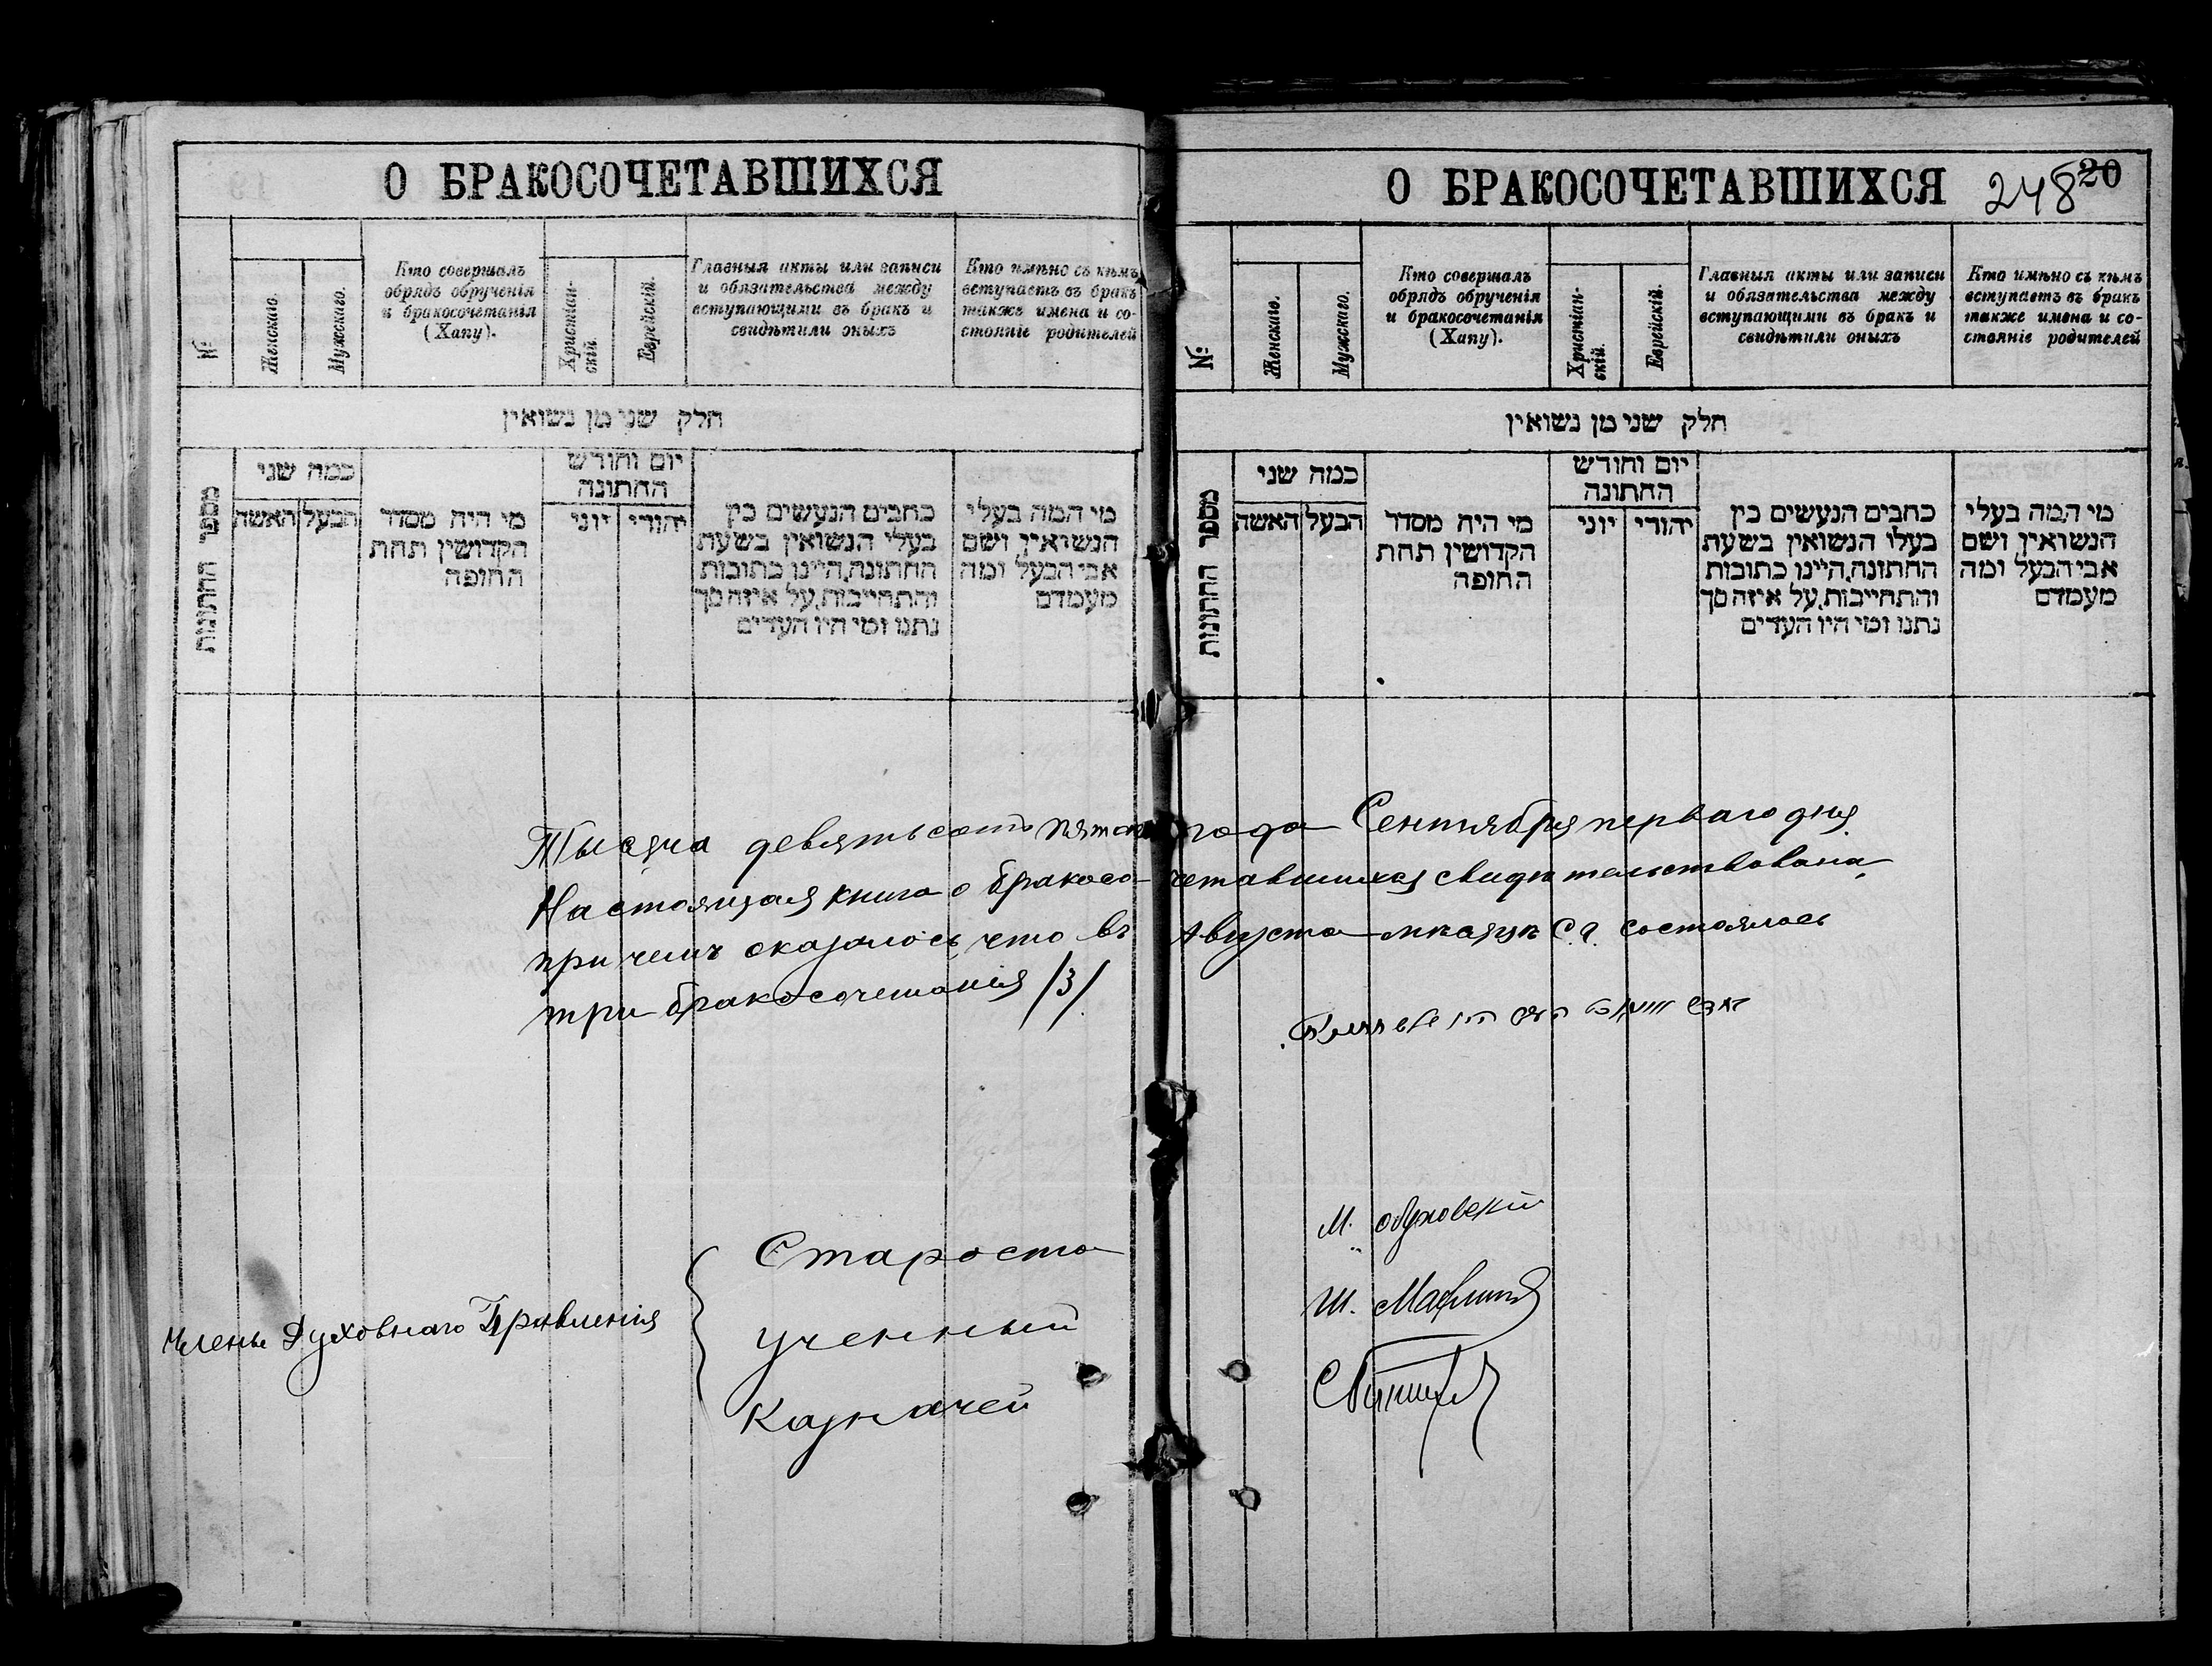 О БРАКОСОЧЕТАВШИХСЯ
№
Женскаго.
Мужскаго.
Кто совершалъ
обрядъ обрученія
и бракосочетанія
(Хапу).
Христіан-
скій.
Еврейскій.
Главныя акты или записи
и обязательства между
вступающими въ бракъ и
свидѣтили оныхъ
Кто имѣно съ кѣмъ
вступаетъ въ бракъ
также имена и со-
стояніе родителей
חלק שני מן נשואין
מספר החתונות
כמה שני
האשה
הבעל
מי היה מסדר
הקדושין תחת
החופה
יום וחודש
החתונה
יוני
יהודי
כתבים הנעשים בין
בעלי הנשואין בשעת
החתונה,היינו כתובות
והתחייבות,על איזה סך
נתנו ומי היו העדים
מי המה בעלי
הנשואין ושם
אבי הבעל ומה
מעמדם
О БРАКОСОЧЕТАВШИХСЯ
248
20
№
Женскаго.
Мужскаго.
Кто совершалъ
обрядъ обрученія
и бракосочетанія
(Хапу).
Христіан-
скій.
Еврейскій.
Главныя акты или записи
и обязательства между
вступающими въ бракъ и
свидѣтили оныхъ
Кто имѣно съ кѣмъ
вступаетъ въ бракъ
также имена и со-
стояніе родителей
חלק שני מן נשואין
מספר החתונות
כמה שני
האשה
הבעל
מי היה מסדר
הקדושין תחת
החופה
יום וחודש
החתונה
יוני
יהודי
כתבים הנעשים בין
בעלו הנשואין בשעת
החתונה,היינו כתובות
והתחייבות,על איזה סך
נתנו ומי היו העדים
מי המה בעלי
הנשואין ושם
אבי הבעל ומה
מעמדם
Тысяча девятьсотъ пятаго года Сентября перваго дня
Настоящая книга о бракосо-четавшихся свидѣтельствована,
при чемъ оказалось, что въ Августа мѣсяцѣ с.г. состоялось
три бракосочетанія /3/.
Члены Духовнаго Правленія
Староста
М. Обуховскій
Ученный
Ш.
Казначей